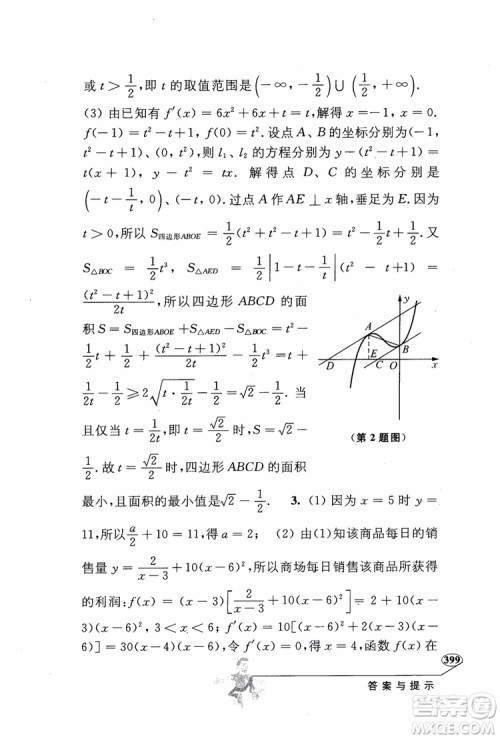 或 t > 1/2,即 t 的取值范围是 (-∞, -1/2) ∪ (1/2, +∞).
(3) 由已知有 f′(x) = 6x² + 6x + t = t,解得 x = -1,x = 0.
f(-1) = t² - t + 1,f(0) = t². 设点 A、B 的坐标分别为(-1,
t² - t + 1)、(0, t²),则 l₁、l₂ 的方程分别为 y - (t² - t + 1) =
t(x + 1)、y - t² = tx. 解得点 D、C 的坐标分别是
(-t - 1/t, 0)、(-t, 0). 过点 A 作 AE ⊥ x 轴,垂足为 E. 因为
t > 0,所以 S四边形ABOE = 1/2 (t² - t + 1 + t²) = t² - 1/2 t + 1/2. 又
S△BOC = 1/2 t³,S△AED = 1/2 |1 - t - 1/t| (t² - t + 1) =
(t² - t + 1)²/2t,所以四边形 ABCD 的面
积 S = S四边形ABOE + S△AED - S△BOC = t² -
1/2 t + 1/2 + (t² - t + 1)²/2t - 1/2 t³ = t +
1/2t - 1/2 ≥ 2√(t · 1/2t) - 1/2 = √2 - 1/2.
当且仅当 t = 1/2t,即 t = √2/2 时,S = √2 -
1/2. 故当 t = √2/2 时,四边形 ABCD 的面积
A
B
D
E
C
O
x
(第 2 题图)
最小,且面积的最小值是 √2 - 1/2. 3. (1) 因为 x = 5 时,y =
11,所以 a/2 + 10 = 11,得 a = 2; (2) 由(1)知该商品每日的销
售量 y = 2/(x - 3) + 10(x - 6)²,所以商场每日销售该商品所获得
的利润:f(x) = (x - 3)[2/(x - 3) + 10(x - 6)²] = 2 + 10(x -
3)(x - 6)²,3 < x < 6;f′(x) = 10[(x - 6)² + 2(x - 3)(x -
6)] = 30(x - 4)(x - 6). 令 f′(x) = 0,得 x = 4,函数 f(x) 在
399
答案与提示